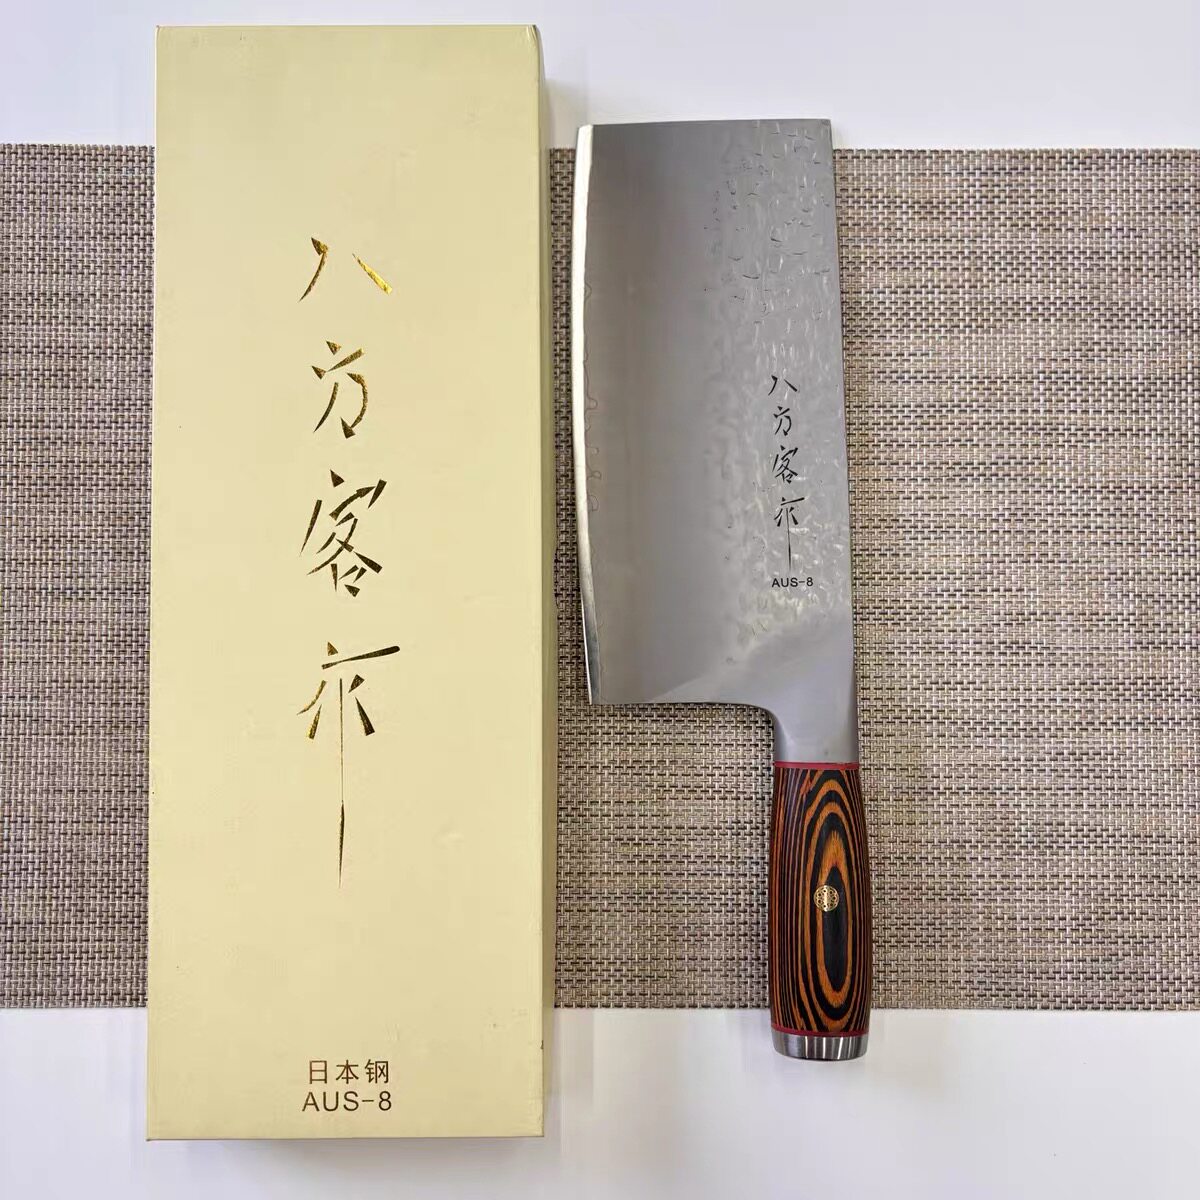 八方客作
日本钢
AUS-8
八方客作
AUS-8